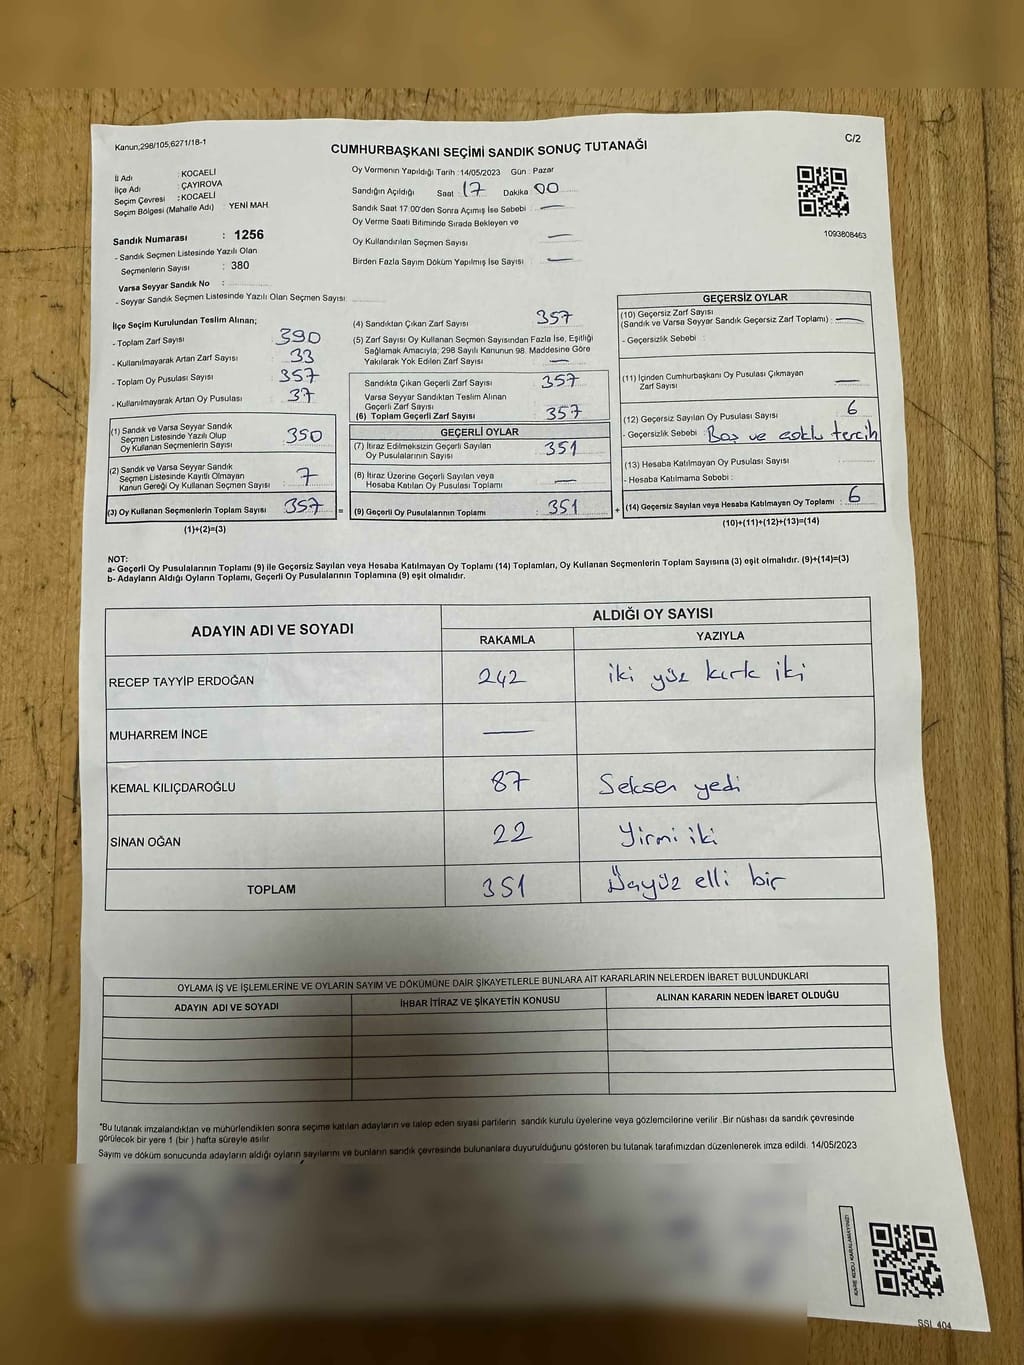 Kanun,298/105,6271/18-1
C/2
CUMHURBAŞKANI SEÇİMİ SANDIK SONUÇ TUTANAĞI
İl Adı : KOCAELİ
İlçe Adı : ÇAYIROVA
Seçim Çevresi : KOCAELİ
Seçim Bölgesi (Mahalle Adı) : YENİ MAH.
Sandık Numarası : 1256
- Sandık Seçmen Listesinde Yazılı Olan
Seçmenlerin Sayısı : 380
Varsa Seyyar Sandık No :
- Seyyar Sandık Seçmen Listesinde Yazılı Olan Seçmen Sayısı:
Oy Vermenin Yapıldığı Tarih :14/05/2023 Gün : Pazar
Sandığın Açıldığı Saat : 17 Dakika 00
Sandık Saat 17.00'den Sonra Açımış İse Sebebi : —
Oy Verme Saati Bitiminde Sırada Bekleyen ve
Oy Kullandırılan Seçmen Sayısı : —
Birden Fazla Sayım Döküm Yapılmış İse Sayısı : —
1093808463
İlçe Seçim Kurulundan Teslim Alınan;
- Toplam Zarf Sayısı : 390
- Kullanılmayarak Artan Zarf Sayısı : 33
- Toplam Oy Pusulası Sayısı : 357
- Kullanılmayarak Artan Oy Pusulası : 37
(1) Sandık ve Varsa Seyyar Sandık
Seçmen Listesinde Yazılı Olup
Oy Kullanan Seçmenlerin Sayısı : 350
(2) Sandık ve Varsa Seyyar Sandık
Seçmen Listesinde Kayıtlı Olmayan
Kanun Gereği Oy Kullanan Seçmen Sayısı : 7
(3) Oy Kullanan Seçmenlerin Toplam Sayısı : 357 =
(1)+(2)=(3)
(4) Sandıktan Çıkan Zarf Sayısı : 357
(5) Zarf Sayısı Oy Kullanan Seçmen Sayısından Fazla İse, Eşitliği
Sağlamak Amacıyla; 298 Sayılı Kanunun 98. Maddesine Göre
Yakılarak Yok Edilen Zarf Sayısı : —
Sandıkta Çıkan Geçerli Zarf Sayısı : 357
Varsa Seyyar Sandıktan Teslim Alınan
Geçerli Zarf Sayısı :
(6) Toplam Geçerli Zarf Sayısı : 357
GEÇERLİ OYLAR
(7) İtiraz Edilmeksizin Geçerli Sayılan
Oy Pusulalarının Sayısı : 351
(8) İtiraz Üzerine Geçerli Sayılan veya
Hesaba Katılan Oy Pusulası Toplamı : —
(9) Geçerli Oy Pusulalarının Toplamı : 351 +
GEÇERSİZ OYLAR
(10) Geçersiz Zarf Sayısı
(Sandık ve Varsa Seyyar Sandık Geçersiz Zarf Toplamı) : —
- Geçersizlik Sebebi :
(11) İçinden Cumhurbaşkanı Oy Pusulası Çıkmayan
Zarf Sayısı : —
(12) Geçersiz Sayılan Oy Pusulası Sayısı : 6
- Geçersizlik Sebebi : Boş ve çoklu tercih
(13) Hesaba Katılmayan Oy Pusulası Sayısı :
- Hesaba Katılmama Sebebi :
(14) Geçersiz Sayılan veya Hesaba Katılmayan Oy Toplamı : 6
(10)+(11)+(12)+(13)=(14)
NOT:
a- Geçerli Oy Pusulalarının Toplamı (9) ile Geçersiz Sayılan veya Hesaba Katılmayan Oy Toplamı (14) Toplamları, Oy Kullanan Seçmenlerin Toplam Sayısına (3) eşit olmalıdır. (9)+(14)=(3)
b- Adayların Aldığı Oyların Toplamı, Geçerli Oy Pusulalarının Toplamına (9) eşit olmalıdır.
ADAYIN ADI VE SOYADI
ALDIĞI OY SAYISI
RAKAMLA YAZIYLA
RECEP TAYYİP ERDOĞAN 242 iki yüz kırk iki
MUHARREM İNCE —
KEMAL KILIÇDAROĞLU 87 Seksen yedi
SİNAN OĞAN 22 Yirmi iki
TOPLAM 351 Üçyüz elli bir
OYLAMA İŞ VE İŞLEMLERİNE VE OYLARIN SAYIM VE DÖKÜMÜNE DAİR ŞİKAYETLERLE BUNLARA AİT KARARLARIN NELERDEN İBARET BULUNDUKLARI
ADAYIN ADI VE SOYADI İHBAR İTİRAZ VE ŞİKAYETİN KONUSU ALINAN KARARIN NEDEN İBARET OLDUĞU
*Bu tutanak imzalandıktan ve mühürlendikten sonra seçime katılan adayların ve talep eden siyasi partilerin sandık kurulu üyelerine veya gözlemcilerine verilir. Bir nüshası da sandık çevresinde
görülecek bir yere 1 (bir ) hafta süreyle asılır
Sayım ve döküm sonucunda adayların aldığı oyların sayılarını ve bunların sandık çevresinde bulunanlara duyurulduğunu gösteren bu tutanak tarafımızdan düzenlenerek imza edildi. 14/05/2023
KARE KODU KARALAMAYINIZ!
SSI_404